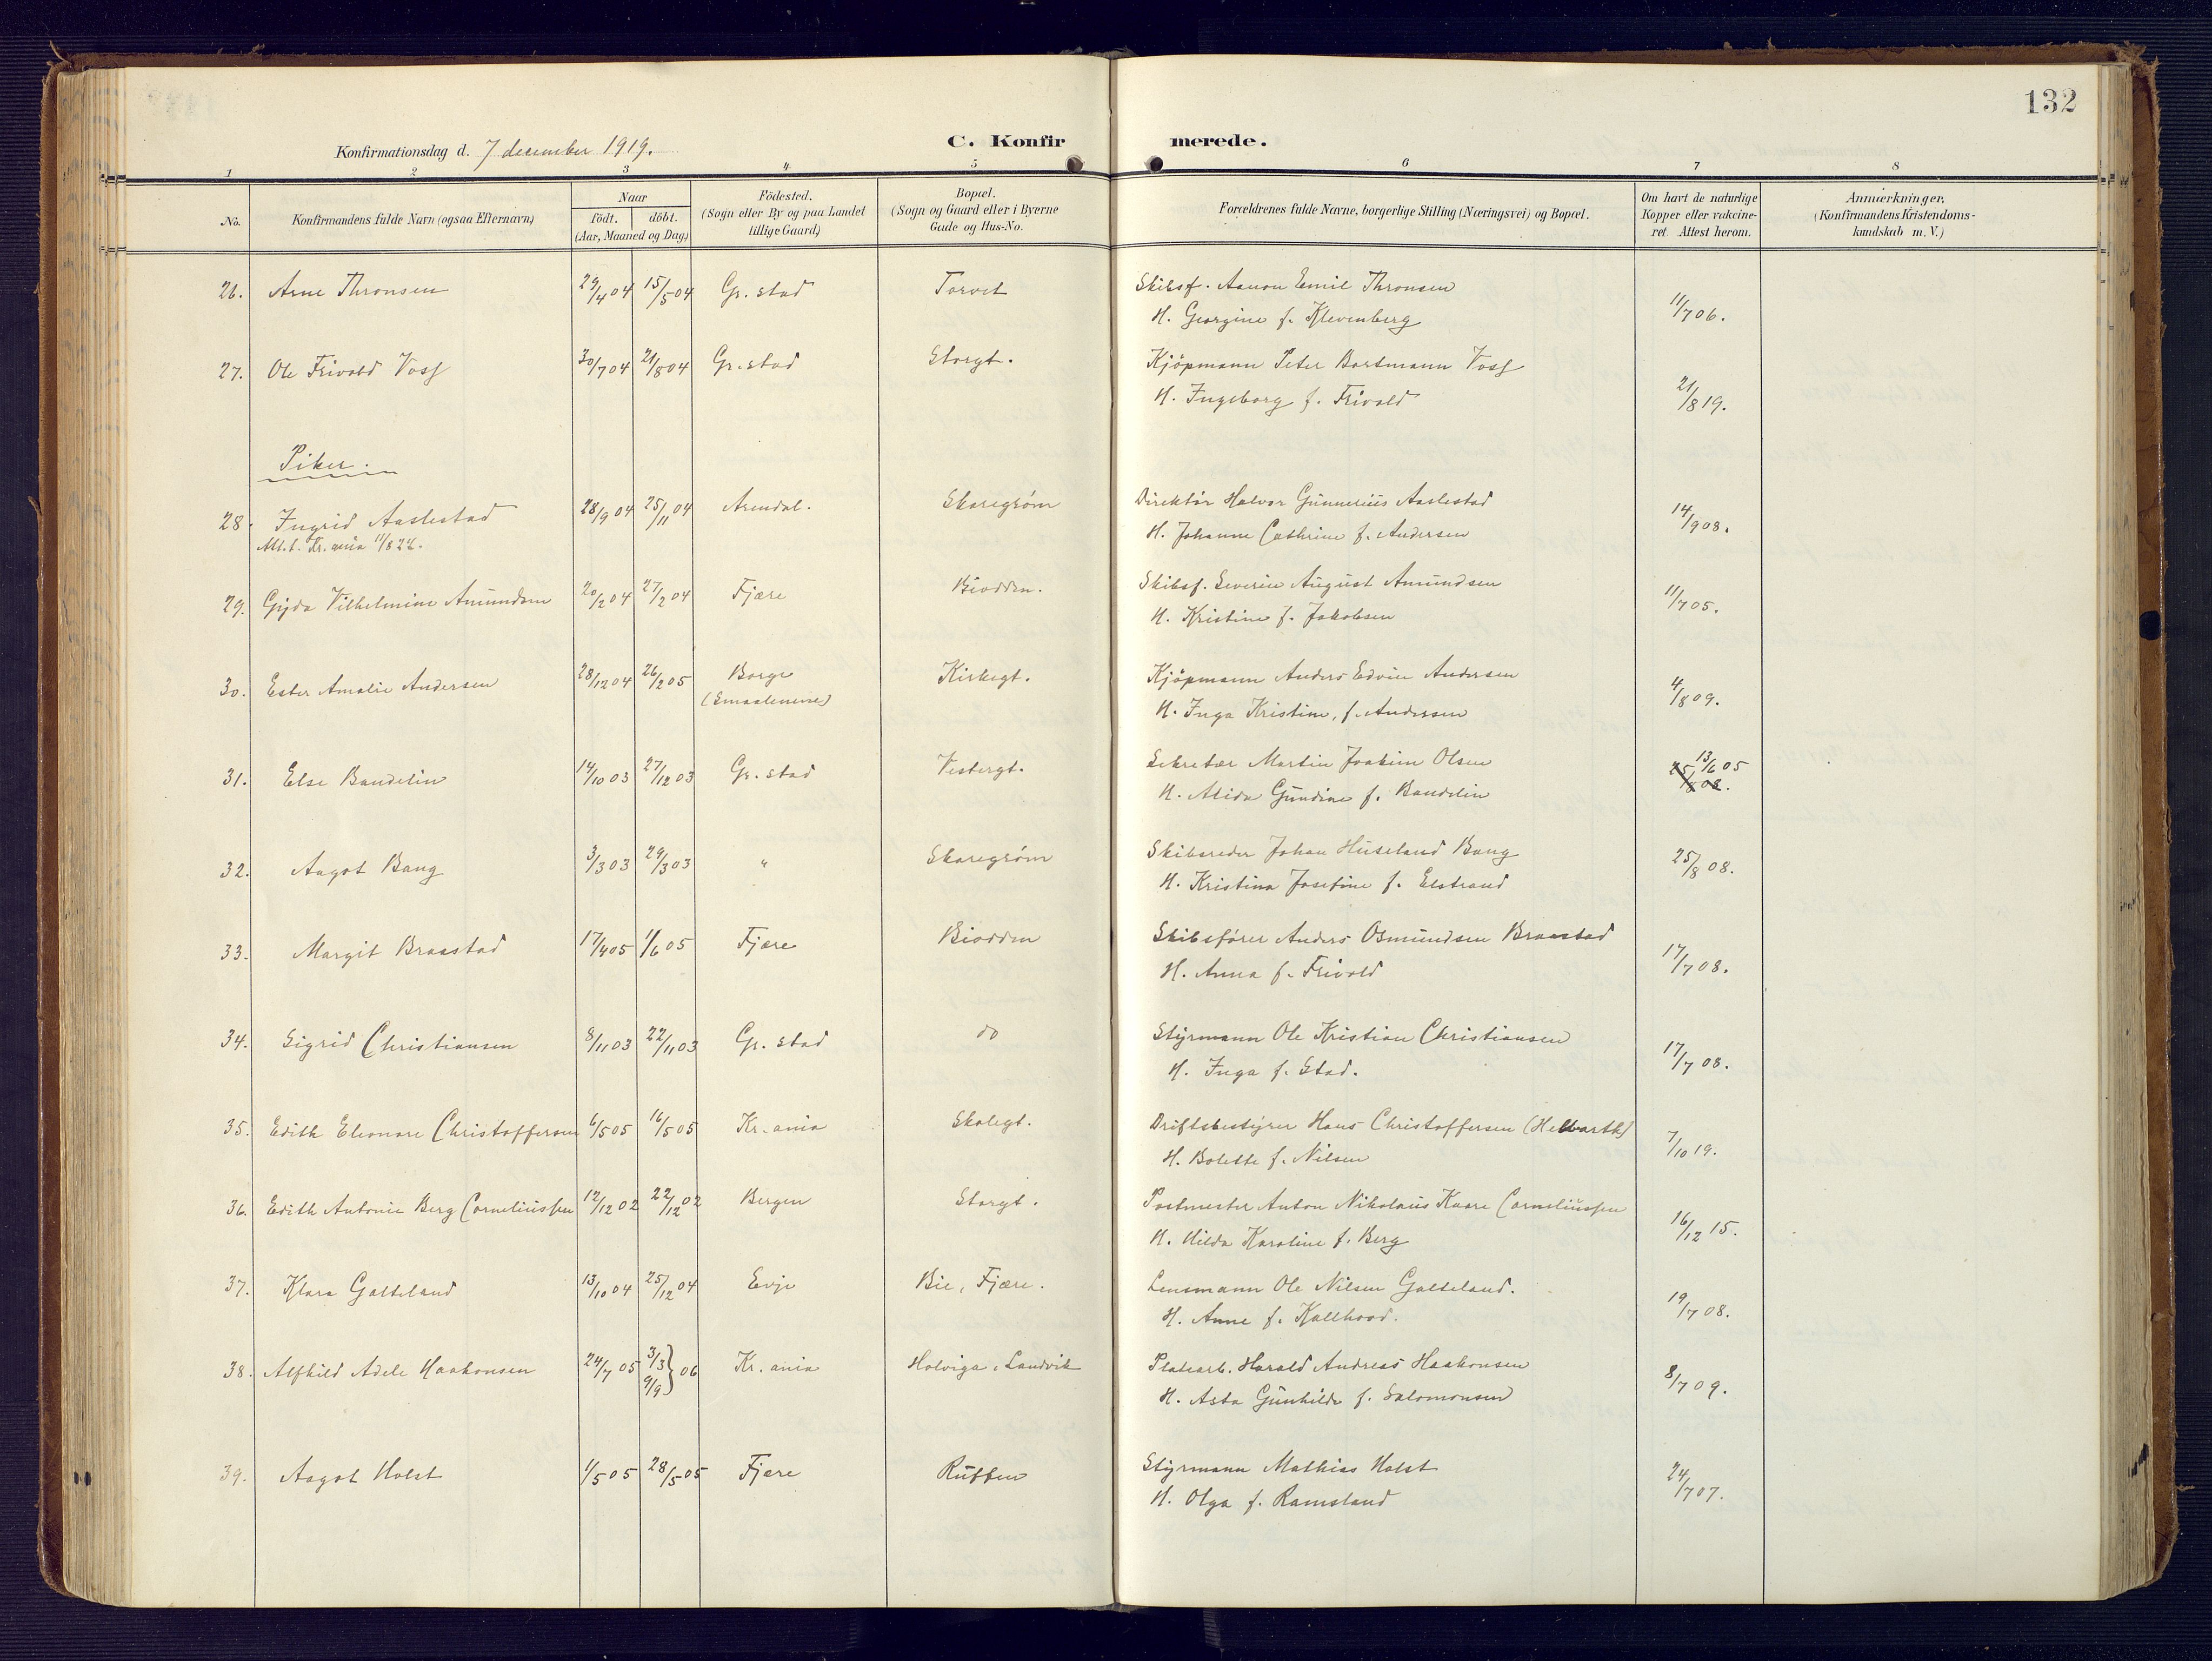 132
Konfirmationsdag d. 7 december 1919.
C. Konfirmerede.
1 2 3 4 5 6 7 8
No.
Konfirmandens fulde Navn (ogsaa Efternavn)
Naar
födt. döbt.
(Aar, Maaned og Dag.)
Födested.
(Sogn eller By og paa Landet
tillige Gaard.)
Bopæl.
(Sogn og Gaard eller i Byerne
Gade og Hus-No.
Forældrenes fulde Navne, borgerlige Stilling (Næringsvei) og Bopæl.
Om havt de naturlige
Kopper eller vakcine-
ret. Attest herom.
Anmærkninger.
(Konfirmandens Kristendoms-
kundskab m. V.)
26. Arne Thronsen 29/4 04 15/5 04 Gr.stad Torvet Skibsf. Aanon Emil Thronsen
H. Georgine f. Klevenberg 11/7 06.
27. Ole Frivold Voss 30/7 04 21/8 04 Gr.stad Storgt. Kjöpmann Peter Bortmann Voss
H. Ingeborg f. Frivold 21/8 19.
Piker.
28. Ingrid Aaslestad 28/9 04 25/11 04 Arendal. Skaregrøm Direktör Halvor Gunnerius Aaslestad
Att. t. Kr.ania 11/8 22. H. Johanne Cathrine f. Andersen 14/9 08.
29. Gyda Vilhelmine Amundsen 20/2 04 27/2 04 Fjære Biodden. Skibsf. Severin August Amundsen
H. Kristine f. Jakobsen 11/7 05.
30. Ester Amalie Andersen 28/12 04 26/2 05 Borge Kirkegt. Kjöpmann Anders Edvin Andersen
(Smaalenene) H. Inga Kristine, f. Andersen 4/8 09.
31. Else Bandelin 14/10 03 27/12 03 Gr.stad Vestergt. Sekretær Martin Joakim Olsen 13/6 05
H. Alida Gundine f. Bandelin 25/8 08.
32. Aagot Bang 3/3 03 29/3 03 " Skaregrøm Skibsreder Johan Huseland Bang
H. Kristina Josefine f. Elstrand 25/8 08.
33. Margit Braastad 17/4 05 1/6 05 Fjære Biodden Skibsfører Anders Osmundsen Braastad
H. Anna f. Frivold 17/7 08.
34. Sigrid Christiansen 8/11 03 22/11 03 Gr.stad do Styrmann Ole Kristian Christiansen
H. Inga f. Stad. 17/7 08.
35. Edith Eleonore Christoffersen 6/5 05 16/5 05 Kr.ania Skolegt. Driftsbestyrer Hans Christoffersen
H. Bolette f. Nilsen 7/10 19.
36. Edith Antonie Berg Corneliussen 12/12 02 22/12 02 Bergen Storgt. Postmester Anton Nikolaus Kaare Corneliussen
H. Hilda Karoline f. Berg 16/12 15.
37. Klara Galteland 13/10 04 25/12 04 Evje Bie, Fjære. Lensmann Ole Nilsen Galteland.
H. Anne f. Kallhovd. 19/7 08.
38. Alfhild Adele Haakonsen 24/7 05 3/3 9/9 } 06 Kr.ania Holviga, Landvik Platearb. Harald Andreas Haakonsen
H. Asta Gunhilde f. Salomonsen 8/7 09.
39. Aagot Holst 1/5 05 28/5 05 Fjære Rutten Styrmann Mathias Holst
H. Olga f. Ramsland 24/7 07.